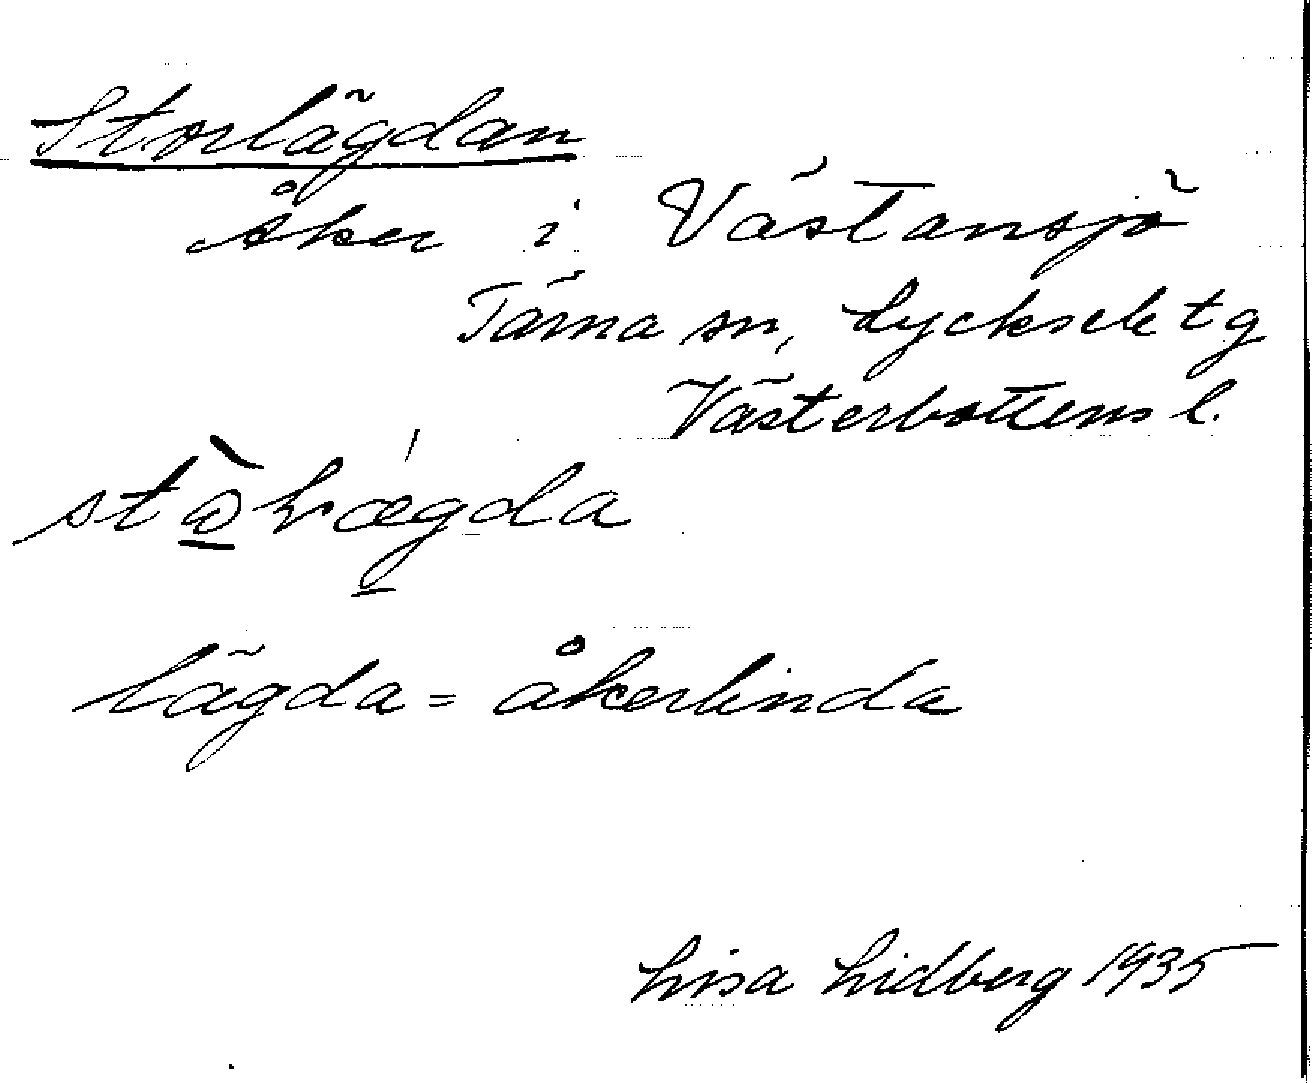 Storlägdan
åker i Västansjö
Tärna sn, Lycksele tg
Västerbottens l.
lägda = åkerlinda
Lisa Lidberg 1935